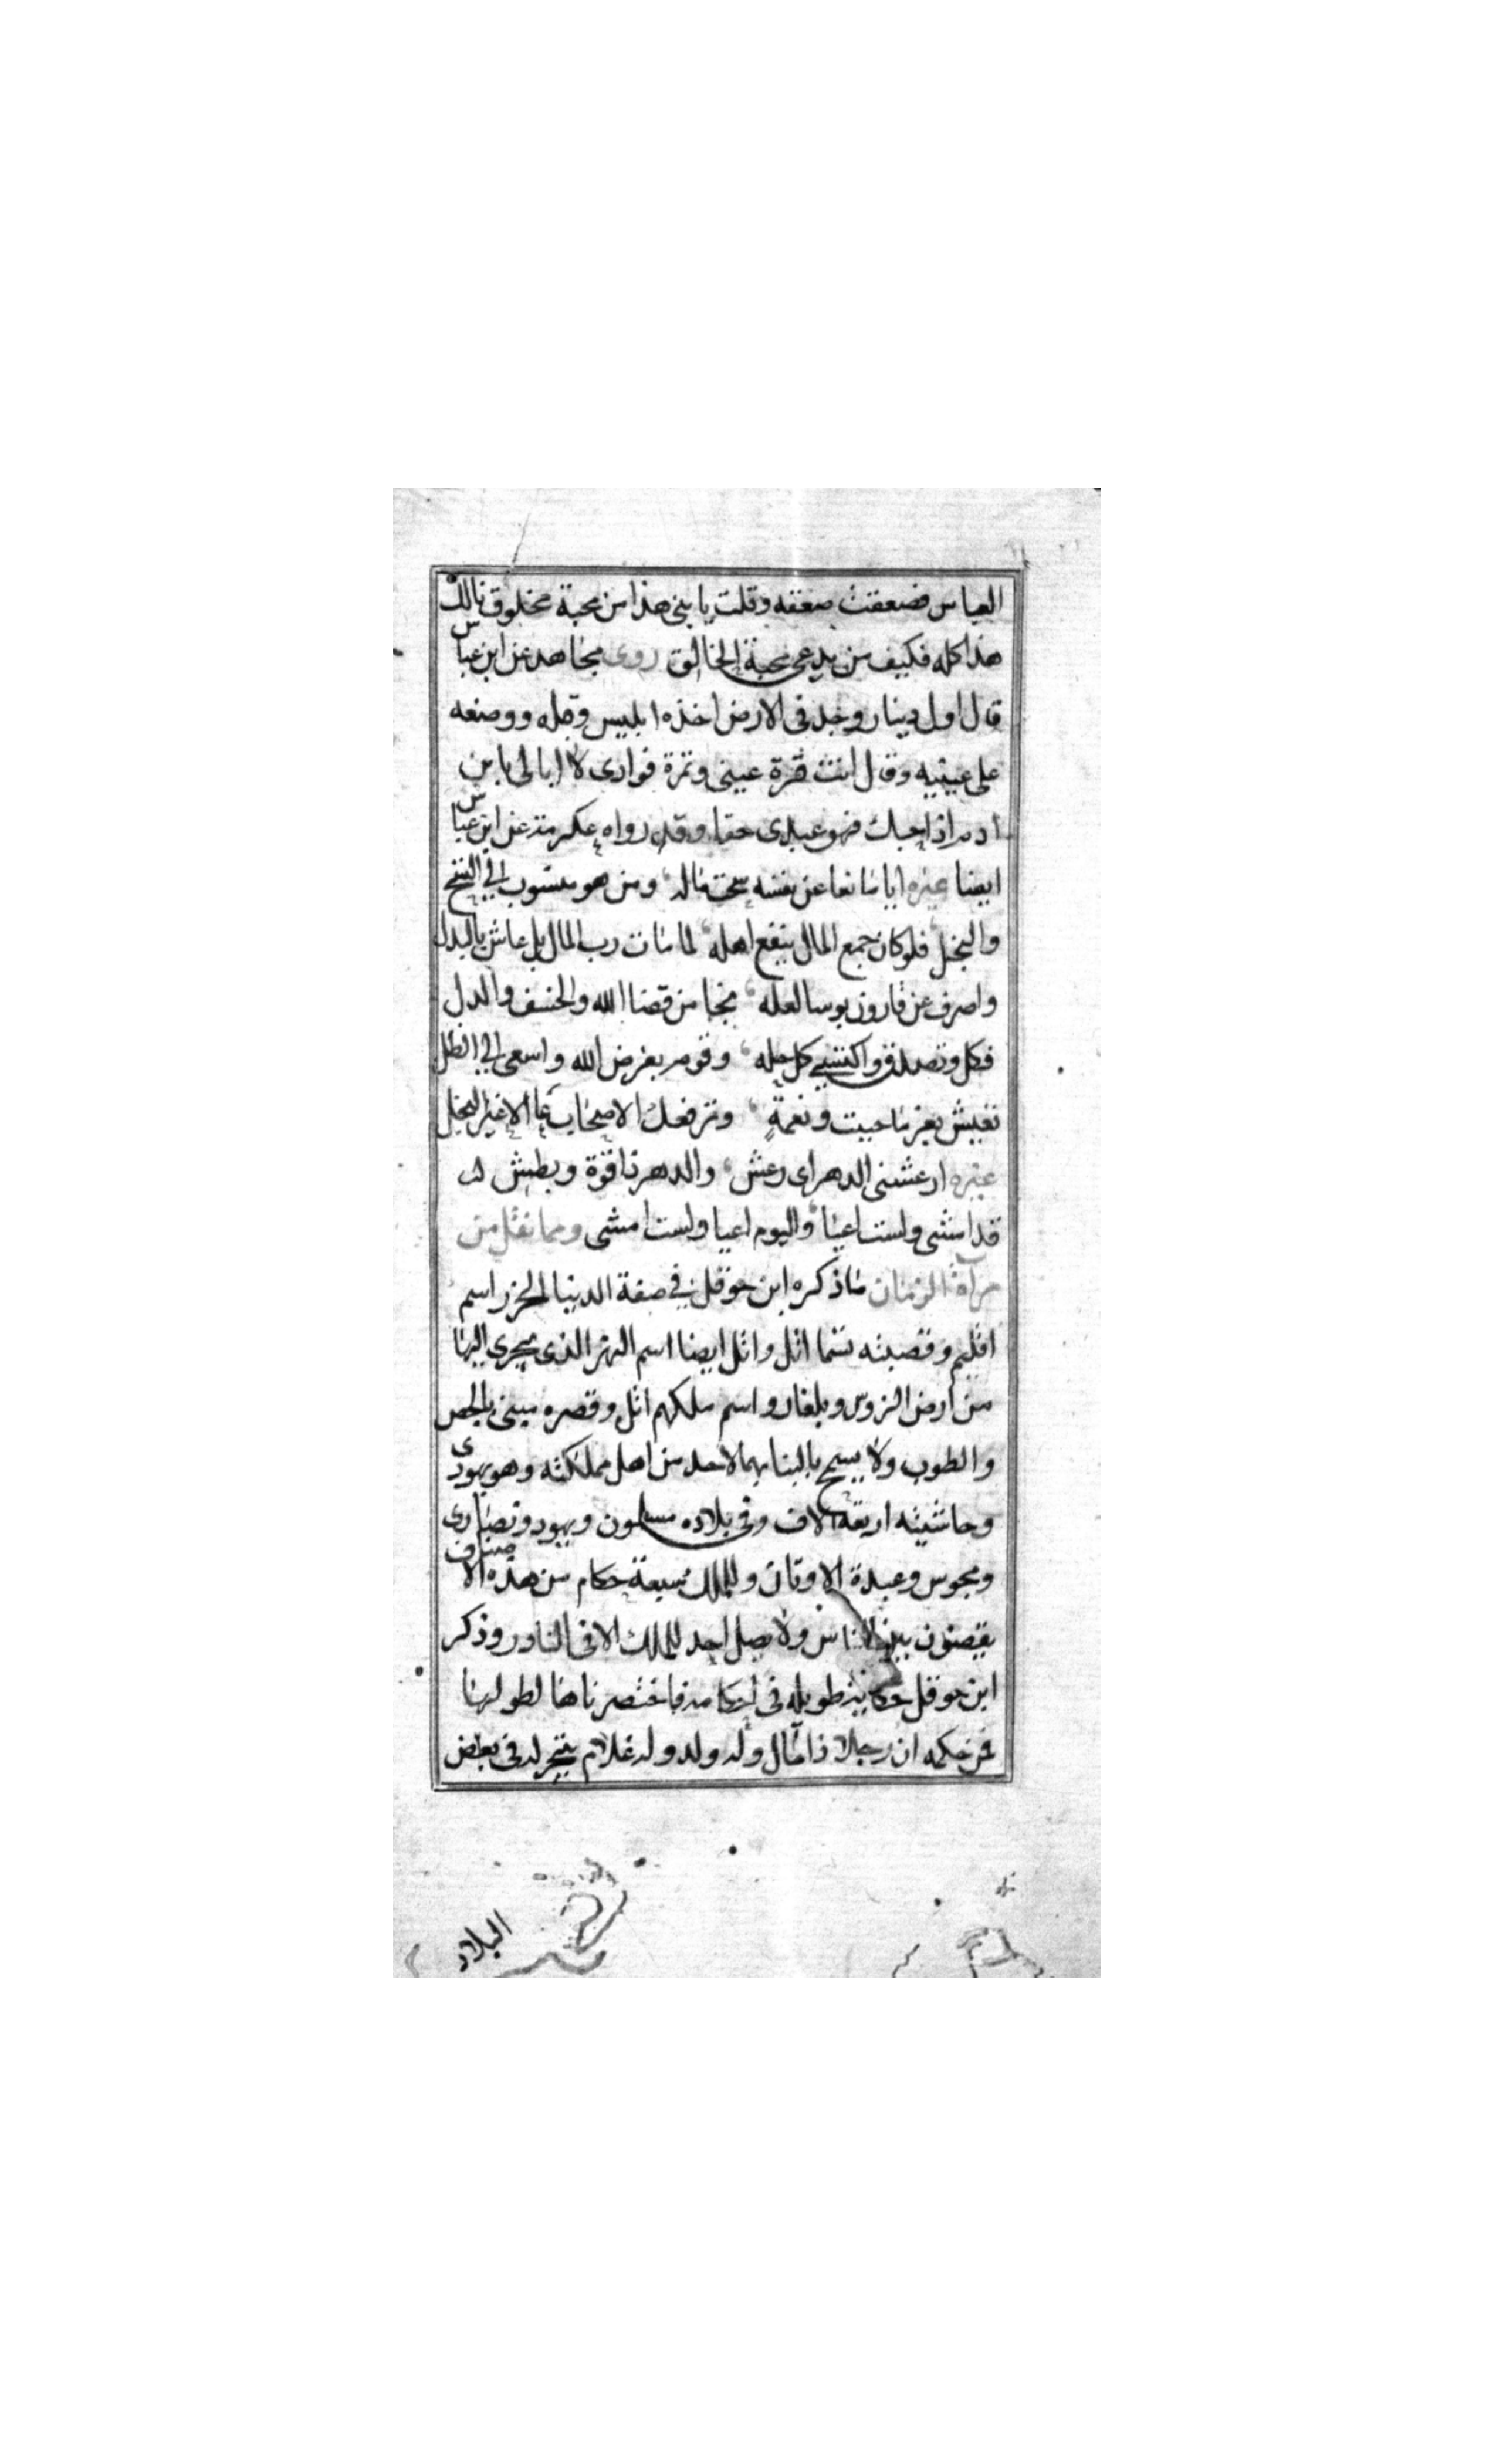 العباس فصعقت صعقه وقلت يا بنى هذا من محبة مخلوق نالك
هذا كله فكيف من يدعى محبة الخالق روى مجاهد عن ابن عباس
قال اول دينار وجد فى الارض اخذه ابليس وقبله ووضعه
على عينيه وقال انت قرة عينى وثمرة فوادى لا ابالى يا بن
ادم اذا حبك فهو عبدى حقا وقد رواه عكرمة عن ابن عباس
ايضا غيره ايا مانعا عن نفسه سحت ماله ومن هو منسوب الى الشح
والبخل فلو كان جمع المال ينفع اهله لما مات رب المال بل عاش بالبدل
واصرف عن قارون بوسا لعله نجا من قضا الله والخسف والدل
فكل وتصدق واكتسى كل حله وقوم بفرض الله واسعى الى الظل
تعيش بعز ما حييت ونعمة وترفعك الاصحاب
غيره ارعشنى الدهر اى رعش والدهر ذا قوة وبطش
قد امشى ولست اعيا واليوم اعيا ولست امشى ومما نقل من
مرآة الزمان ما ذكره ابن حوقل فى صفة الدينا الخزر اسم
اقليم وقصبته تسما اثل واثل ايضا اسم النهر الذى يجرى اليها
من ارض الروس وبلغار واسم ملكهم اثل وقصره مبنى بالجص
والطوب ولا يسمح بالبنا بهما لاحد من اهل مملكته وهو يهودى
وحاشيته اربعة الاف وفى بلاده مسلمون ويهود ونصارى
ومجوس وعبدة الاوثان وللملك سبعة حكام من هذه الاصناف
يقضون بين الناس ولا يصل احد للملك الا فى النادر وذكر
ابن حوقل حكاية طويله فى احكامه فاختصرناها لطولها
فمن حكمه ان رجلا ذا مال وله ولد وله غلام يتجر له فى بعض
البلاد